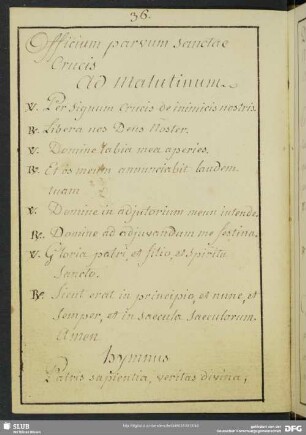 36.
Officium parvum sanctae
Crucis
Ad Matutinum.
V. Per signum Crucis de inimicis nostris.
R. Libera nos Deus Noster.
V. Domine labia mea aperies.
R. Et os meum annunciabit laudem
tuam
V. Domine in adjutorium meum intende.
R. Domine ad adjuvandum me festina.
V. Gloria patri, et filio, et spiritu
sancto.
R. Sicut erat in principio, et nunc, et
semper, et in saecula saeculorum.
Amen
hymnus
Patris sapientia, veritas divina;
SLUB
DFG